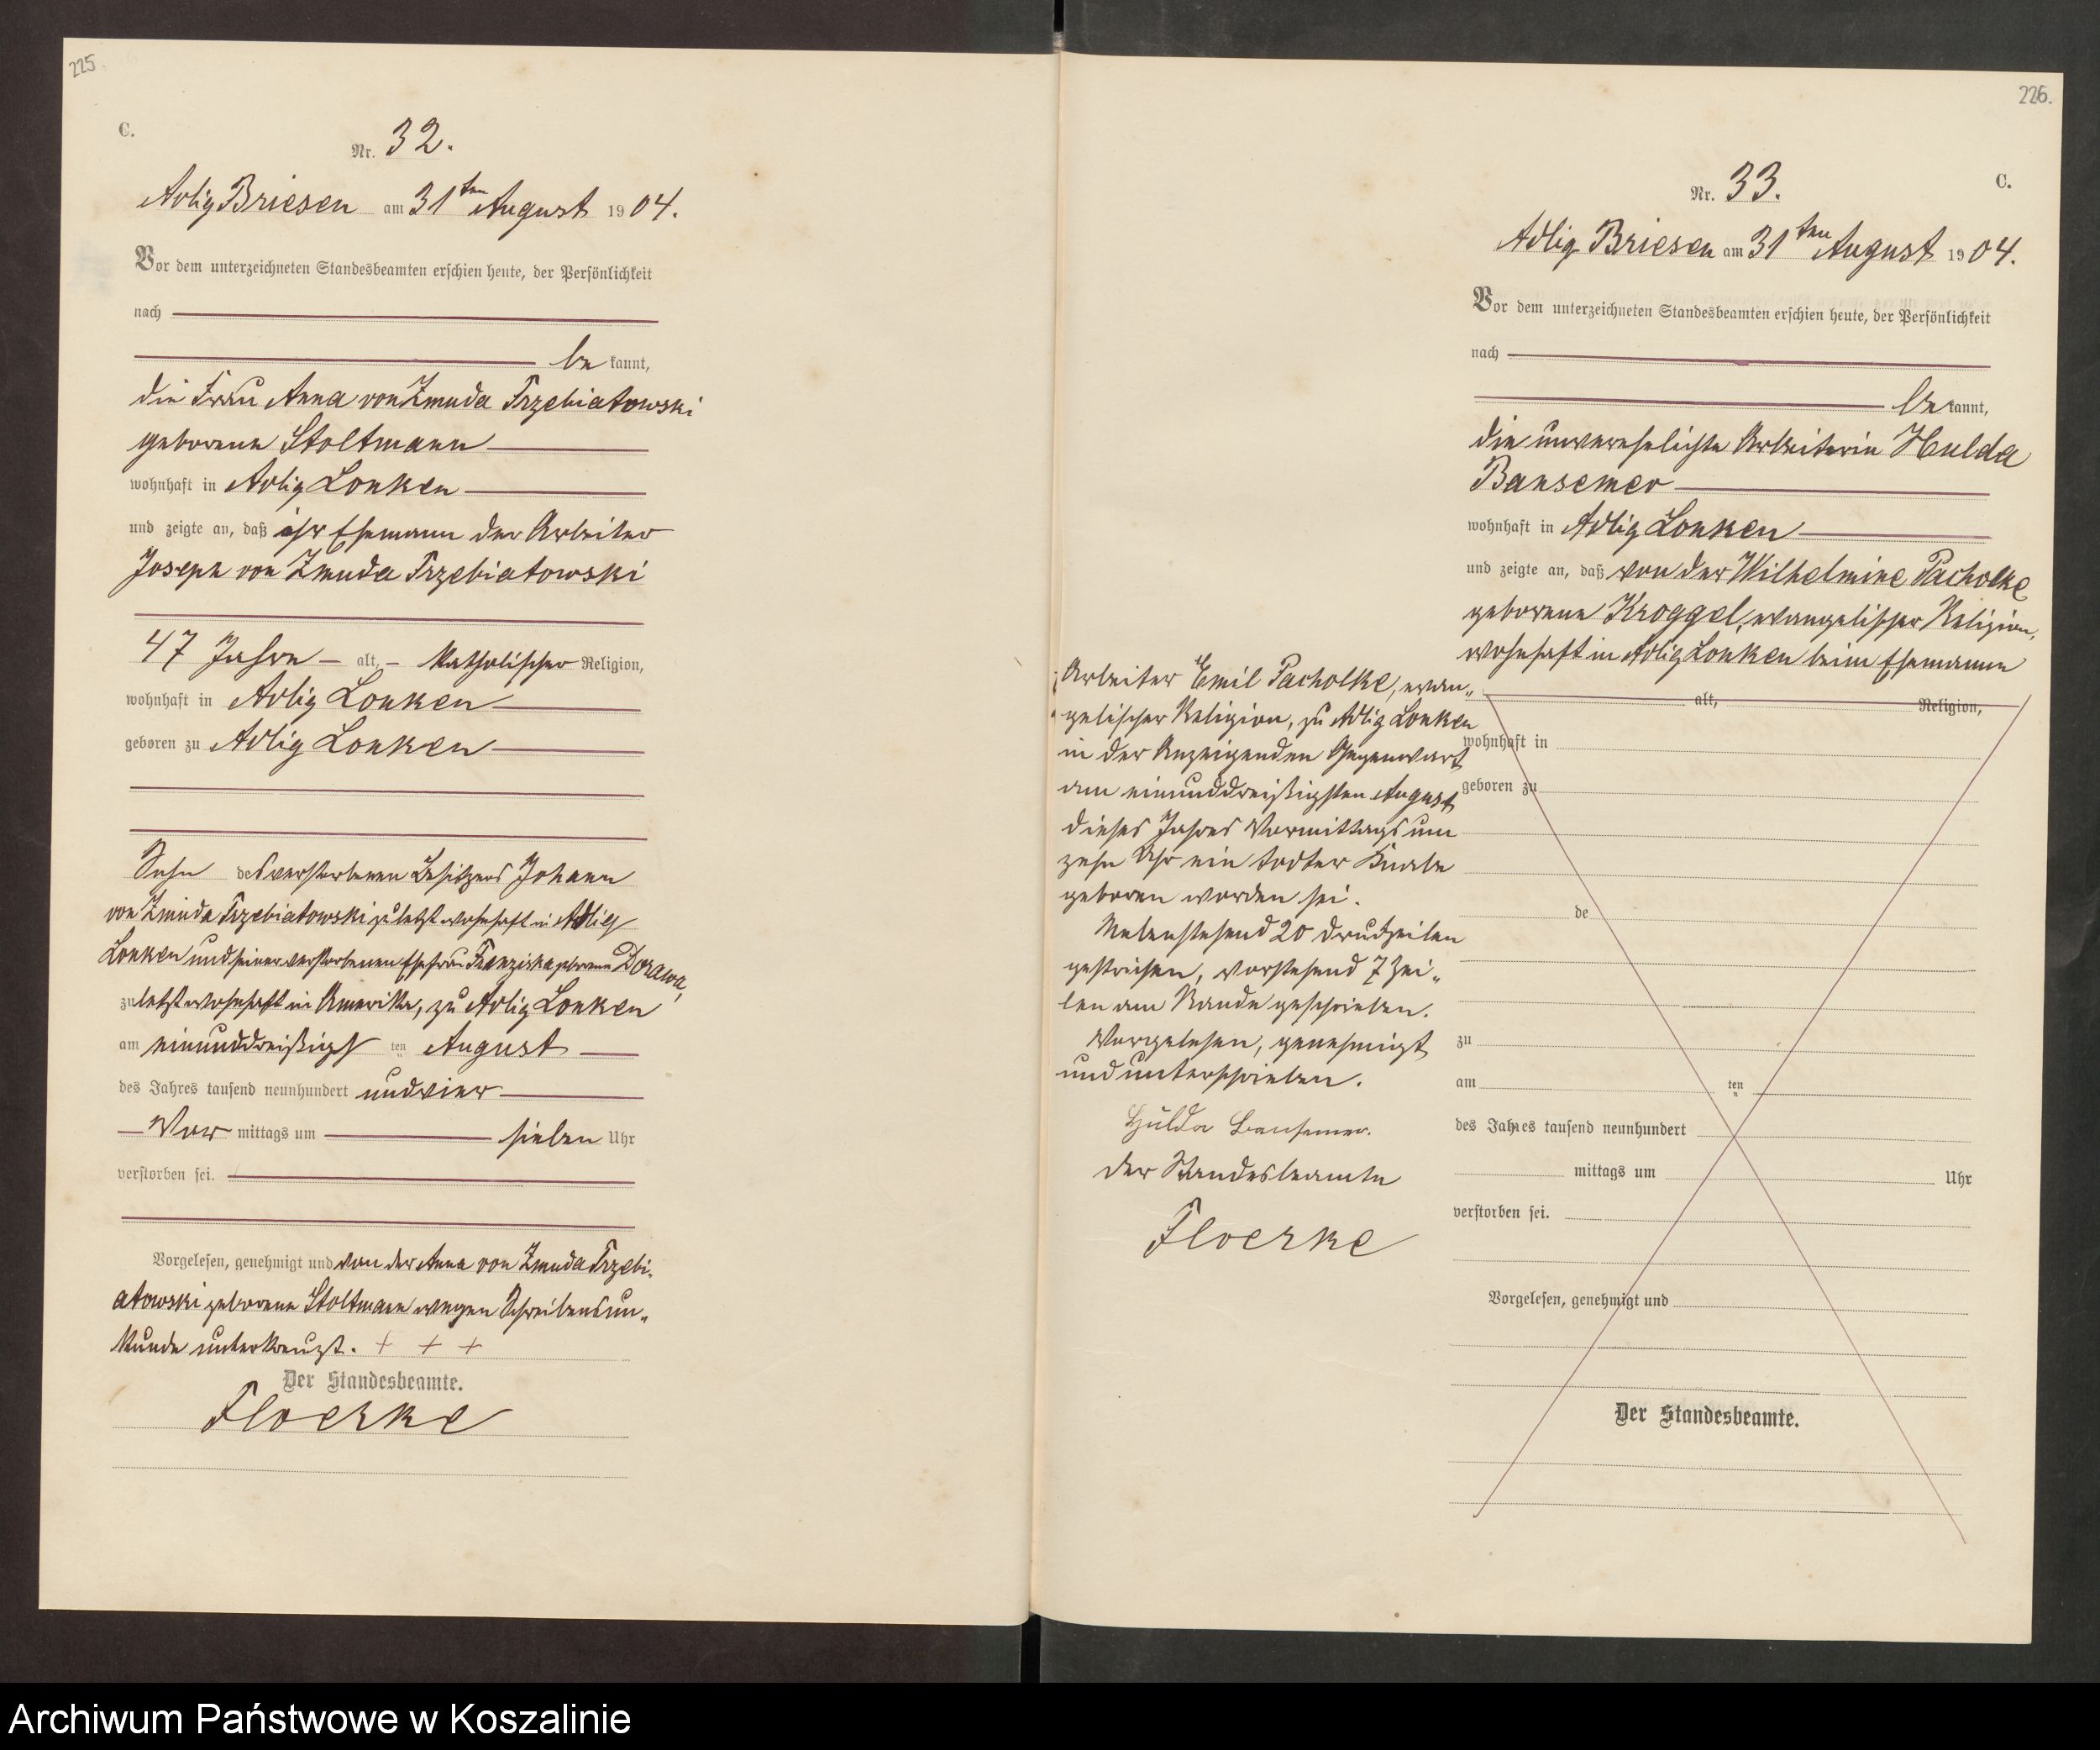 225
C.
Nr. 32.
Adlig Briesen am 31ten August 1904.
Vor dem unterzeichneten Standesbeamten erschien heute, der Persönlichkeit
nach
be kannt,
die Frau Anna von Zmuda Trzebiatowski
geborene Stoltmann
wohnhaft in Adlig Lonken
und zeigte an, daß ihr Ehemann der Arbeiter
Joseph von Zmuda Trzebiatowski
47 Jahre alt, katholischer Religion,
wohnhaft in Adlig Lonken
geboren zu Adlig Lonken
Sohn des verstorbenen Besitzers Johann
von Zmuda Trzebiatowski zuletzt wohnhaft in Adlig
Lonken und seiner verstorbenen Ehefrau Franziska geborene Dorawa,
zuletzt wohnhaft in Amerika, zu Adlig Lonken
am einunddreißigst ten August
des Jahres tausend neunhundert und vier
Vor mittags um sieben Uhr
verstorben sei.
Vorgelesen, genehmigt und von der Anna von Zmuda Trzebi-
atowski geborene Stoltmann wegen Schreibensun-
kunde unterkreuzt. + + +
Der Standesbeamte.
Floerke
226.
C.
Nr. 33.
Adlig Briesen am 31ten August 1904.
Vor dem unterzeichneten Standesbeamten erschien heute, der Persönlichkeit
nach
be kannt,
die unverehelichte Arbeiterin Hulda
Bansemer
wohnhaft in Adlig Lonken
und zeigte an, daß von der Wilhelmine Pacholke
geborene Kroggel, evangelischer Religion,
wohnhaft in Adlig Lonken beim Ehemanne
Arbeiter Emil Pacholke, evan-
gelischer Religion, zu Adlig Lonken
in der Anzeigenden Gegenwart
am einunddreißigsten August
dieses Jahres Vormittags um
zehn Uhr ein todter Knabe
geboren worden sei.
Nebenstehend 20 Druckzeilen
gestrichen, vorstehend 7 Zei-
len am Rande geschrieben.
Vorgelesen, genehmigt
und unterschrieben.
Hulda Bansemer.
Der Standesbeamte
Floerke
alt, Religion,
wohnhaft in
geboren zu
de
zu
am ten
des Jahres tausend neunhundert
mittags um Uhr
verstorben sei.
Vorgelesen, genehmigt und
Der Standesbeamte.
Archiwum Państwowe w Koszalinie